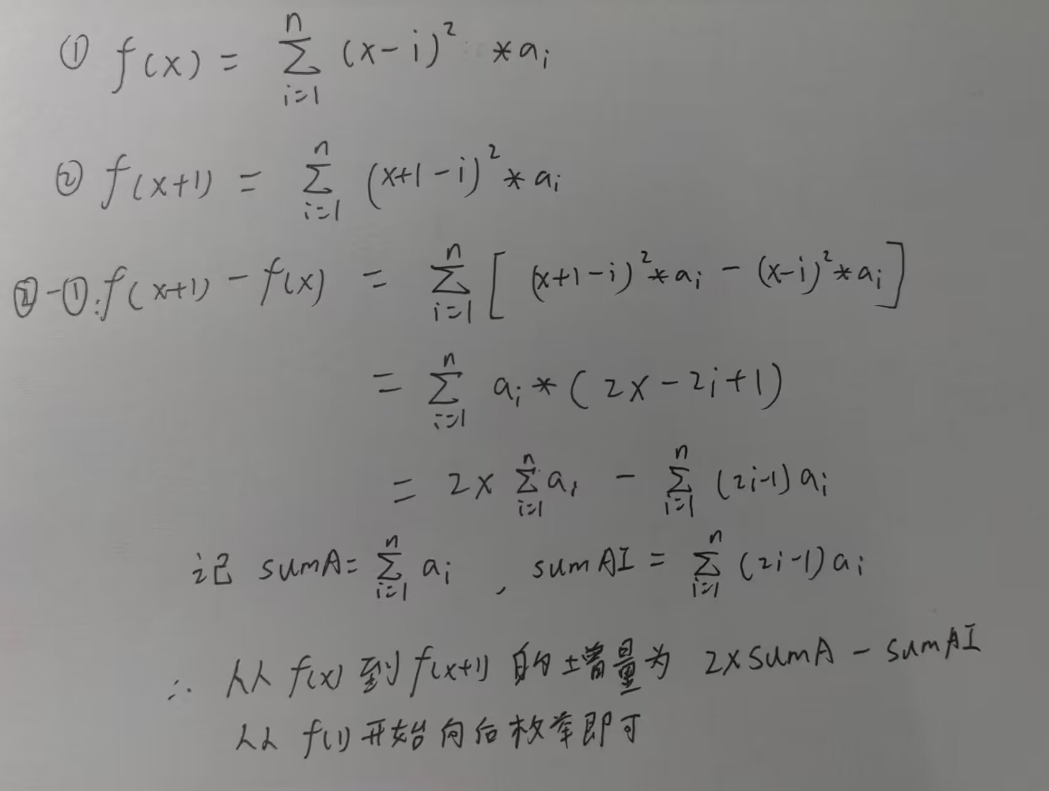 ① f(x) = ∑_{i=1}^{n} (x-i)² *a_i
② f(x+1) = ∑_{i=1}^{n} (x+1-i)² * a_i
②-①: f(x+1) - f(x) = ∑_{i=1}^{n} [ (x+1-i)² * a_i - (x-i)² * a_i ]
= ∑_{i=1}^{n} a_i * ( 2x - 2i + 1 )
= 2x ∑_{i=1}^{n} a_i - ∑_{i=1}^{n} (2i-1) a_i
记 sumA = ∑_{i=1}^{n} a_i , sumAI = ∑_{i=1}^{n} (2i-1) a_i
∴ 从 f(x) 到 f(x+1) 的增量为 2xsumA - sumAI
从 f(1) 开始向后枚举即可